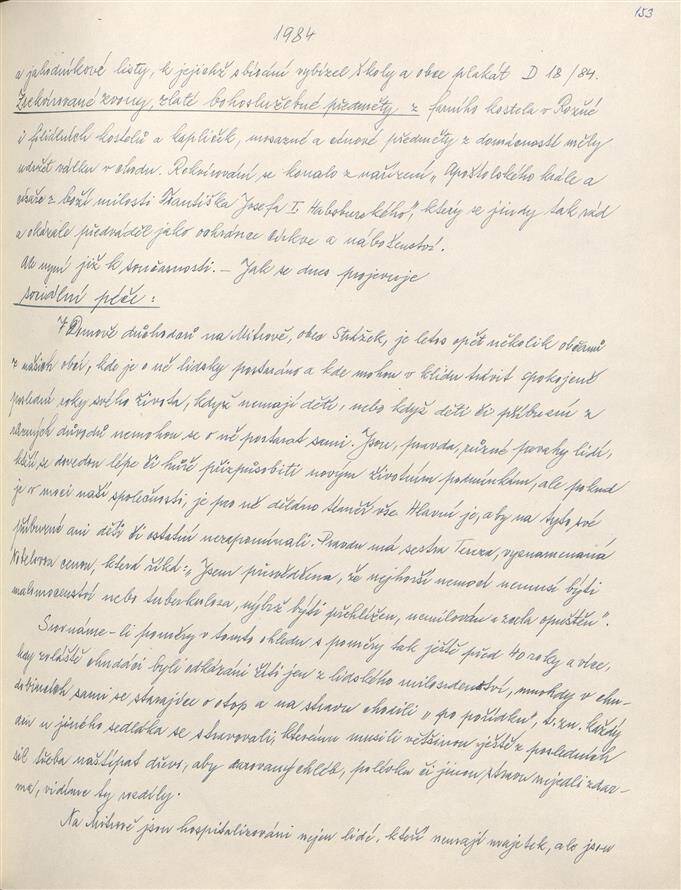 153
1984
a jahodníkové listy, k jejichž sbírání vybízel školy a obce plakát D 18/84.
Zrekvírované zvony, zlaté bohoslužebné předměty z farního kostela v Rožné
i filiálních kostelů a kapliček, mosazné a cínové předměty z domácností měly
udržet válku v chodu. Rekvírování se konalo z nařízení „Apoštolského krále a
císaře z boží milosti Františka Josefa I. Habsburského", který se jindy tak rád
a okázale předváděl jako ochránce církve a náboženství.
Ale nyní již k současnosti. – Jak se dnes projevuje
sociální péče:
V Domově důchodců na Mitrově, obec Strážek, je letos opět několik občanů
z našich obcí, kde je o ně lidsky postaráno a kde mohou v klidu trávit spokojeně
poslední roky svého života, když nemají děti, nebo když děti či příbuzní z
různých důvodů nemohou se o ně postarat sami. Jsou, pravda, různé povahy lidí,
kteří se dovedou lépe či hůře přizpůsobiti novým životním podmínkám, ale pokud
je v moci naší společnosti, je pro ně děláno téměř vše. Hlavní je, aby na tyto své
příbuzné ani děti či ostatní nezapomínali. Pravdu má sestra Tereza, vyznamenaná
Nobelovou cenou, která říká: „Jsem přesvědčena, že nejhorší nemocí nemusí býti
malomocenství nebo tuberkulosa, nýbrž býti přehlížen, nemilován a zcela opuštěn".
Srovnáme-li poměry v tomto ohledu s poměry tak ještě před 40 roky a více,
kdy zvláště chudáci byli odkázáni žíti jen z lidského milosrdenství, mnohdy v chu-
dobincích sami se starajíce o otop a na stravu chodili „po pořádku", t.zn. každý
den u jiného sedláka se stravovali, kterému musili většinou ještě z posledních
sil třeba naštípat dřevo, aby darovaný chléb, polévku či jinou stravu nejedli zdar-
ma, vidíme ty rozdíly.
Na Mitrově jsou hospitalizováni nejen lidé, kteří nemají majetek, ale jsou